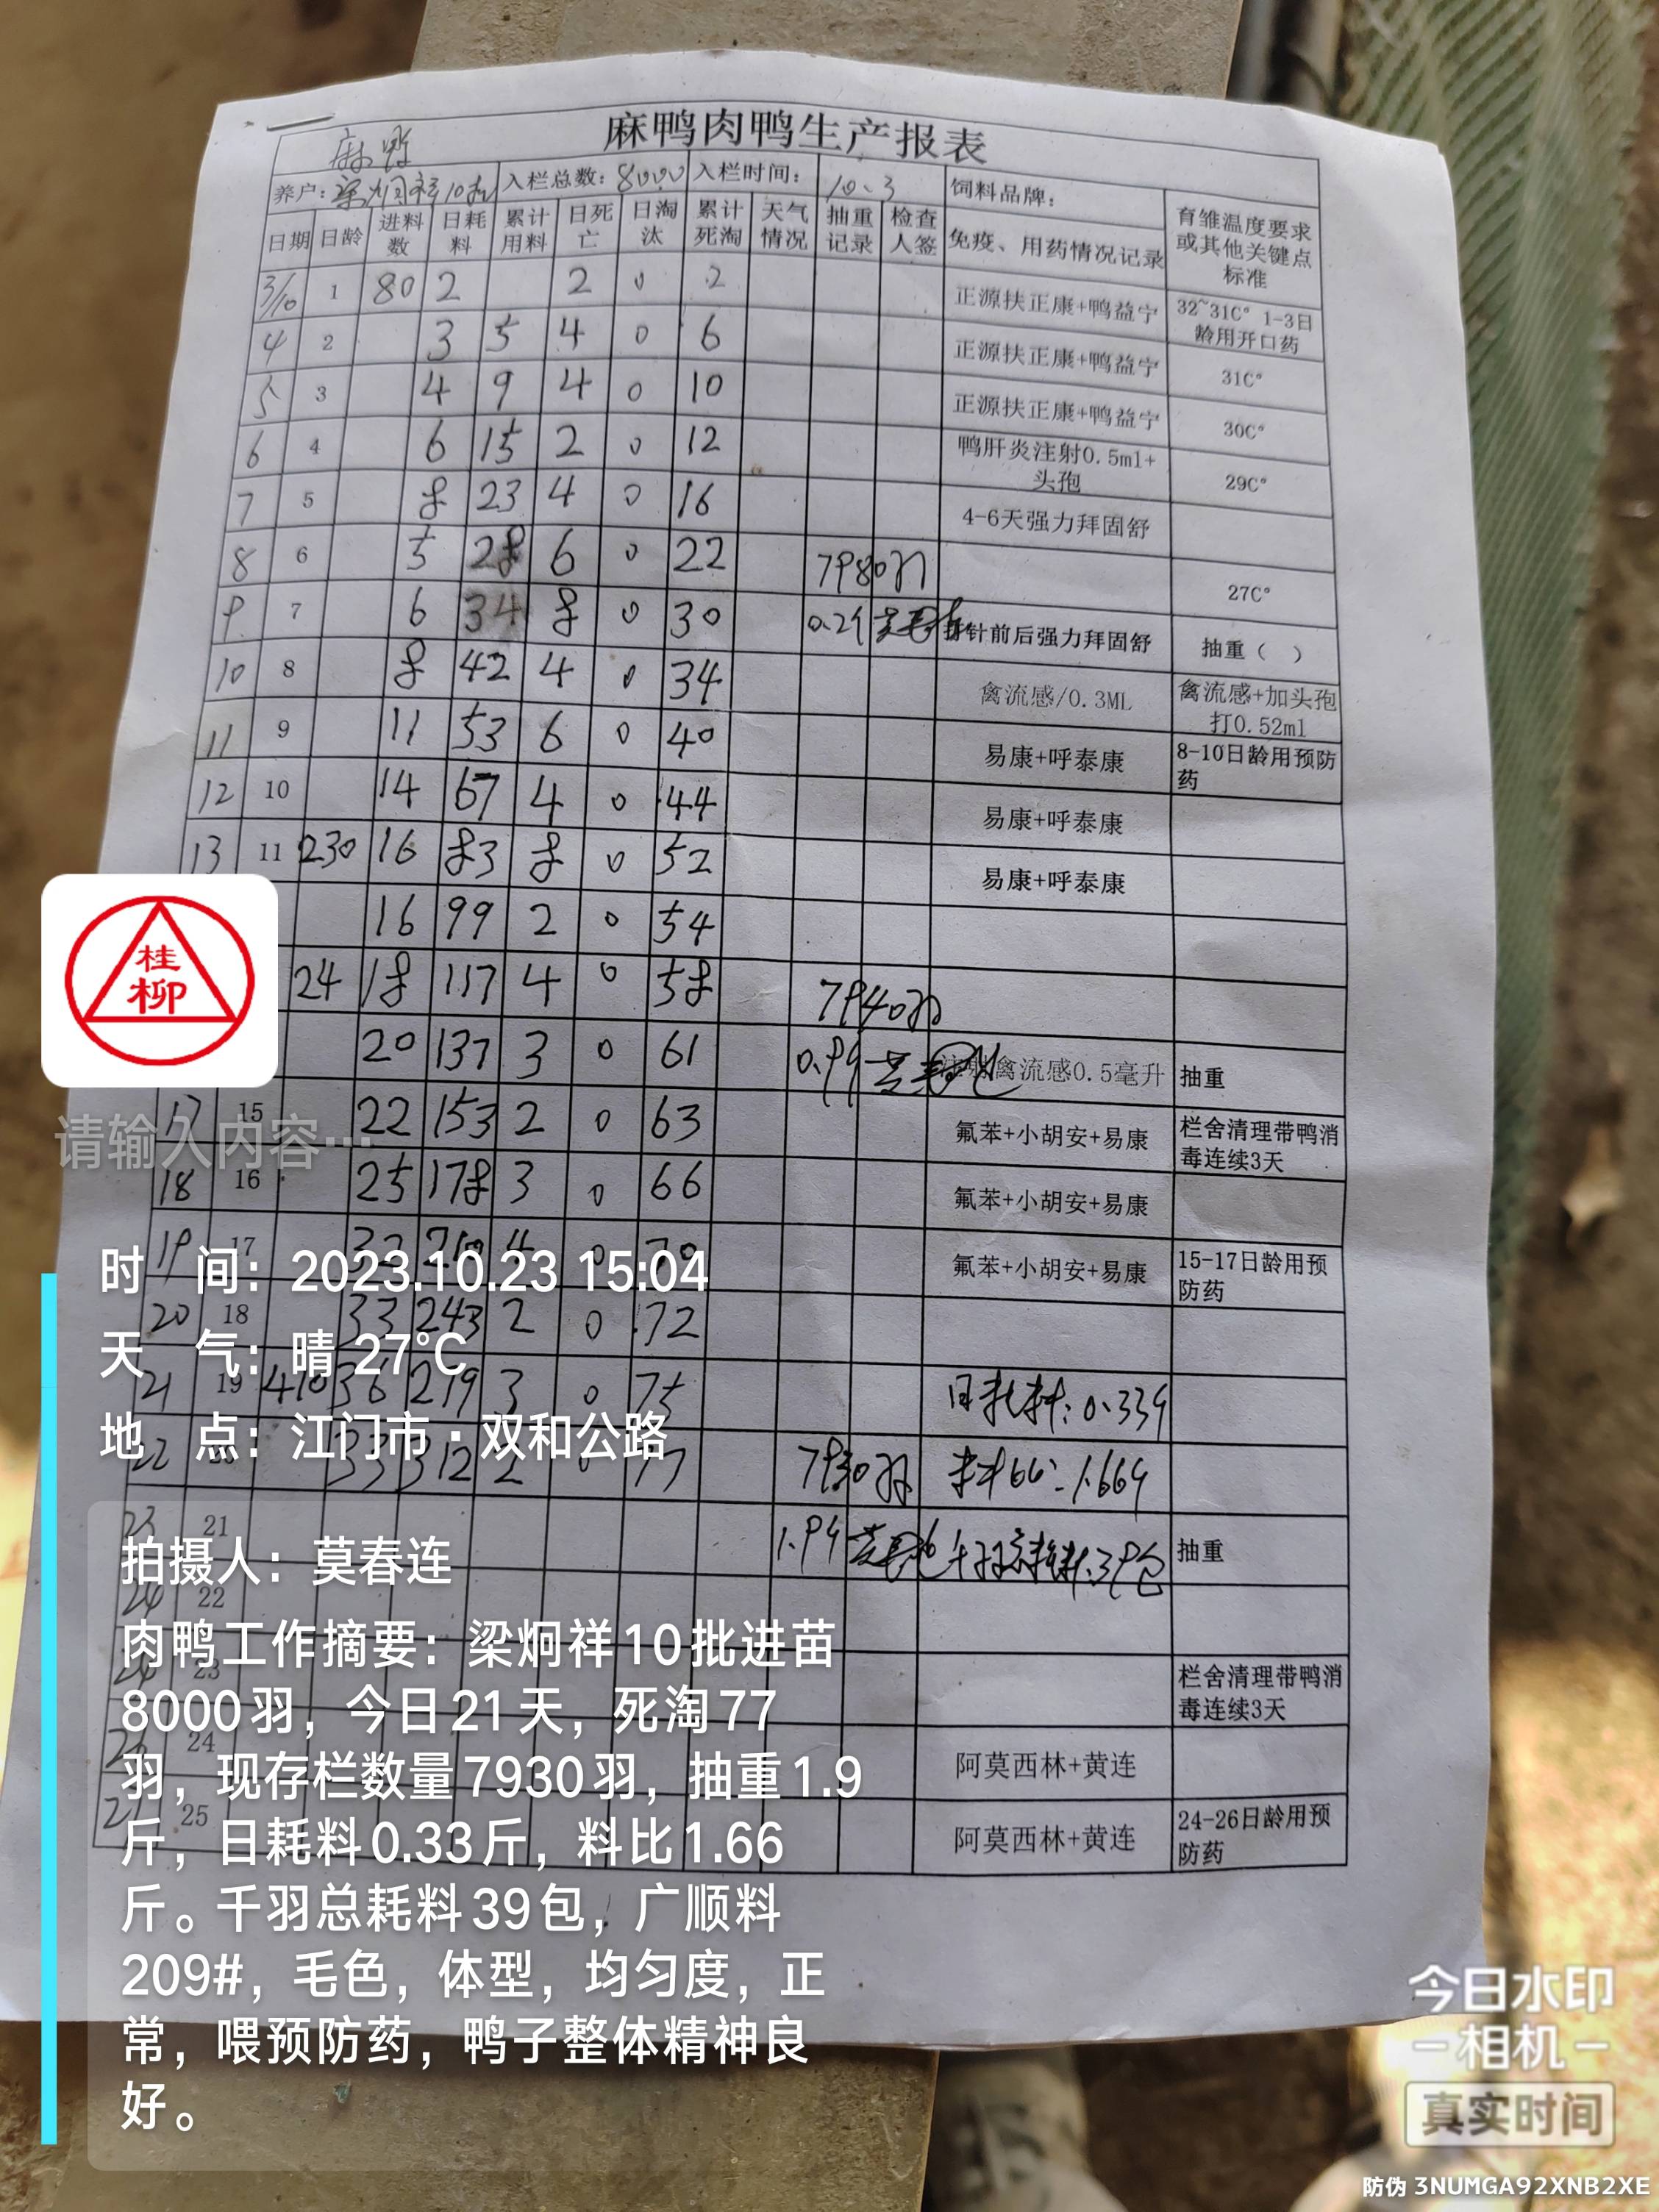 麻鸭肉鸭生产报表
养户: 梁炯祥10批 入栏总数: 8000 入栏时间: 10.3 饲料品牌:
日期 日龄 进料数 日耗料 累计用料 日死亡 日淘汰 累计死淘 天气情况 抽重记录 检查人签 免疫、用药情况记录 育雏温度要求或其他关键点标准
3/10 1 80 2 2 0 2 正源扶正康+鸭益宁 32~31C° 1-3日龄用开口药
4 2 3 5 4 0 6 正源扶正康+鸭益宁 31C°
5 3 4 9 4 0 10 正源扶正康+鸭益宁 30C°
6 4 6 15 2 0 12 鸭肝炎注射0.5ml+头孢 29C°
7 5 8 23 4 0 16 4-6天强力拜固舒
8 6 5 28 6 0 22 7980羽 27C°
9 7 6 34 8 0 30 0.2斤 针前后强力拜固舒 抽重( )
10 8 8 42 4 0 34 禽流感/0.3ML 禽流感+加头孢打0.52ml
11 9 11 53 6 0 40 易康+呼泰康 8-10日龄用预防药
12 10 14 67 4 0 44 易康+呼泰康
13 11 230 16 83 8 0 52 易康+呼泰康
16 99 2 0 54
24 18 117 4 0 58 7940羽
20 137 3 0 61 0.9斤 禽流感0.5毫升 抽重
17 15 22 153 2 0 63 氟苯+小胡安+易康 栏舍清理带鸭消毒连续3天
18 16 25 178 3 0 66 氟苯+小胡安+易康
19 17 32 210 4 0 70 氟苯+小胡安+易康 15-17日龄用预防药
20 18 33 243 2 0 72
21 19 410 36 279 3 0 75 日耗料: 0.33斤
22 20 33 312 2 0 77 7930羽 料比: 1.66斤
23 21 1.9斤 千羽总耗料:39包 抽重
24 22
23 栏舍清理带鸭消毒连续3天
24 阿莫西林+黄连
25 阿莫西林+黄连 24-26日龄用预防药
桂
柳
请输入内容…
时 间: 2023.10.23 15:04
天 气: 晴 27℃
地 点: 江门市·双和公路
拍摄人: 莫春连
肉鸭工作摘要: 梁炯祥10批进苗
8000羽, 今日21天, 死淘77
羽, 现存栏数量7930羽, 抽重1.9
斤, 日耗料0.33斤, 料比1.66
斤。千羽总耗料39包, 广顺料
209#, 毛色, 体型, 均匀度, 正
常, 喂预防药, 鸭子整体精神良
好。
今日水印
相机
真实时间
防伪 3NUMGA92XNB2XE